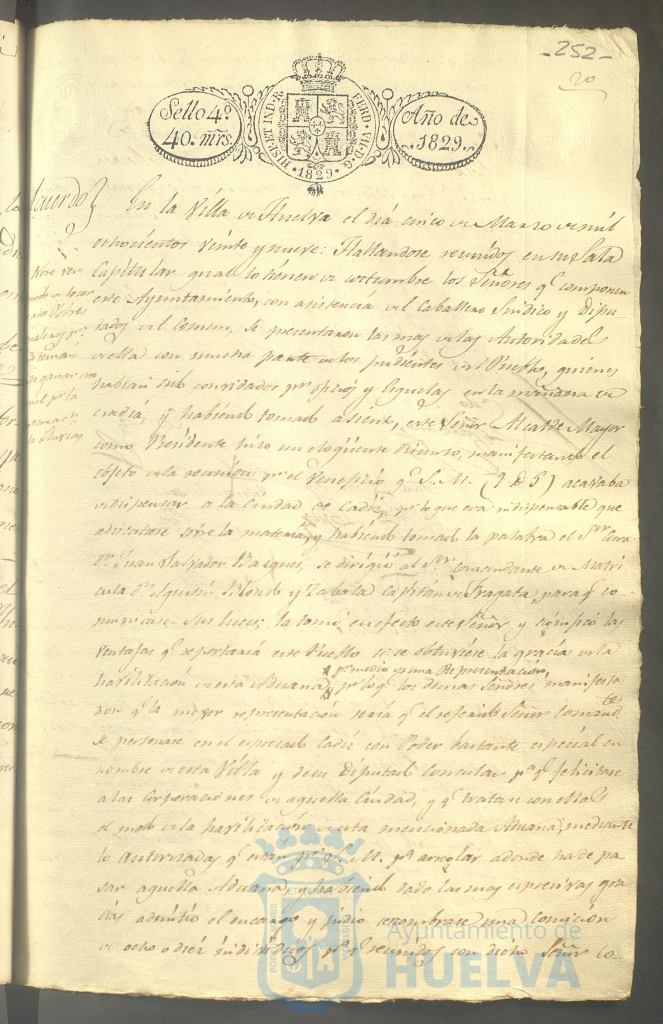 -252-
20
Sello 4º
40. mrs
HISP. ET IND. R. FERD. VII. D. G. 1829.
Año de
1829.
Acuerdo
En la Villa de Huelva el dia cinco de Marzo de mil
ochocientos veinte y nueve: Hallandose reunidos en su Sala
Capitular qual lo tienen de costumbre los Señores qe componen
este Ayuntamiento, con asistencia del Caballero Sindico y Dipu
tados del Comun, se presentaron las mas de las Autoridades
de ella con mucha parte de los pudientes del Pueblo, quienes
habian sido convidados pr oficios y Esquelas en la mañana de
este dia, y habiendo tomado asiento, este Señor Alcalde Mayor
como Presidente hizo un eloqüente discurso, manifestando el
objeto de la reunion pr el beneficio qe S. M. (Q D G) acavaba
de dispensar a la Ciudad de Cadiz, pr lo que era indispensable que
se sobre la materia, y habiendo tomado la palabra el Sor Cura
Dn Juan Salvador Vazques, se dirigió al Sor Comandante de Matri
cula Dn Agustin y Zabala Capitan de Fragata, para qe co-
municase sus luces: la tomó en efecto este Señor y significó las
ventajas qe reportaria este Pueblo si se obtuviese la gracia de la
habilitacion de esta Aduana pr medio de una Representacion,
pr lo qe los demas Señores manifesta
ron qe la mejor representacion seria qe el referido Señor Comandte
se personase en el expresado Cadiz con Poder bastante especial en
nombre de esta Villa y de su Diputado Consular pa qe felicitase
a las Corporaciones de aquella Ciudad, y qe tratase con ellas
el modo de la havilitacion de esta mencionada Aduana, mediante
lo autorizadas qe estan pr S. M. pa arreglar adonde ha de pa
sar aquella Aduana, y habiendo dado las mas expresivas gra
cias admitió el encargo y pidio se nombrase una comision
de ocho o diez individuos pa qe reunidos con dicho Señor Co
Ayuntamiento de
HUELVA